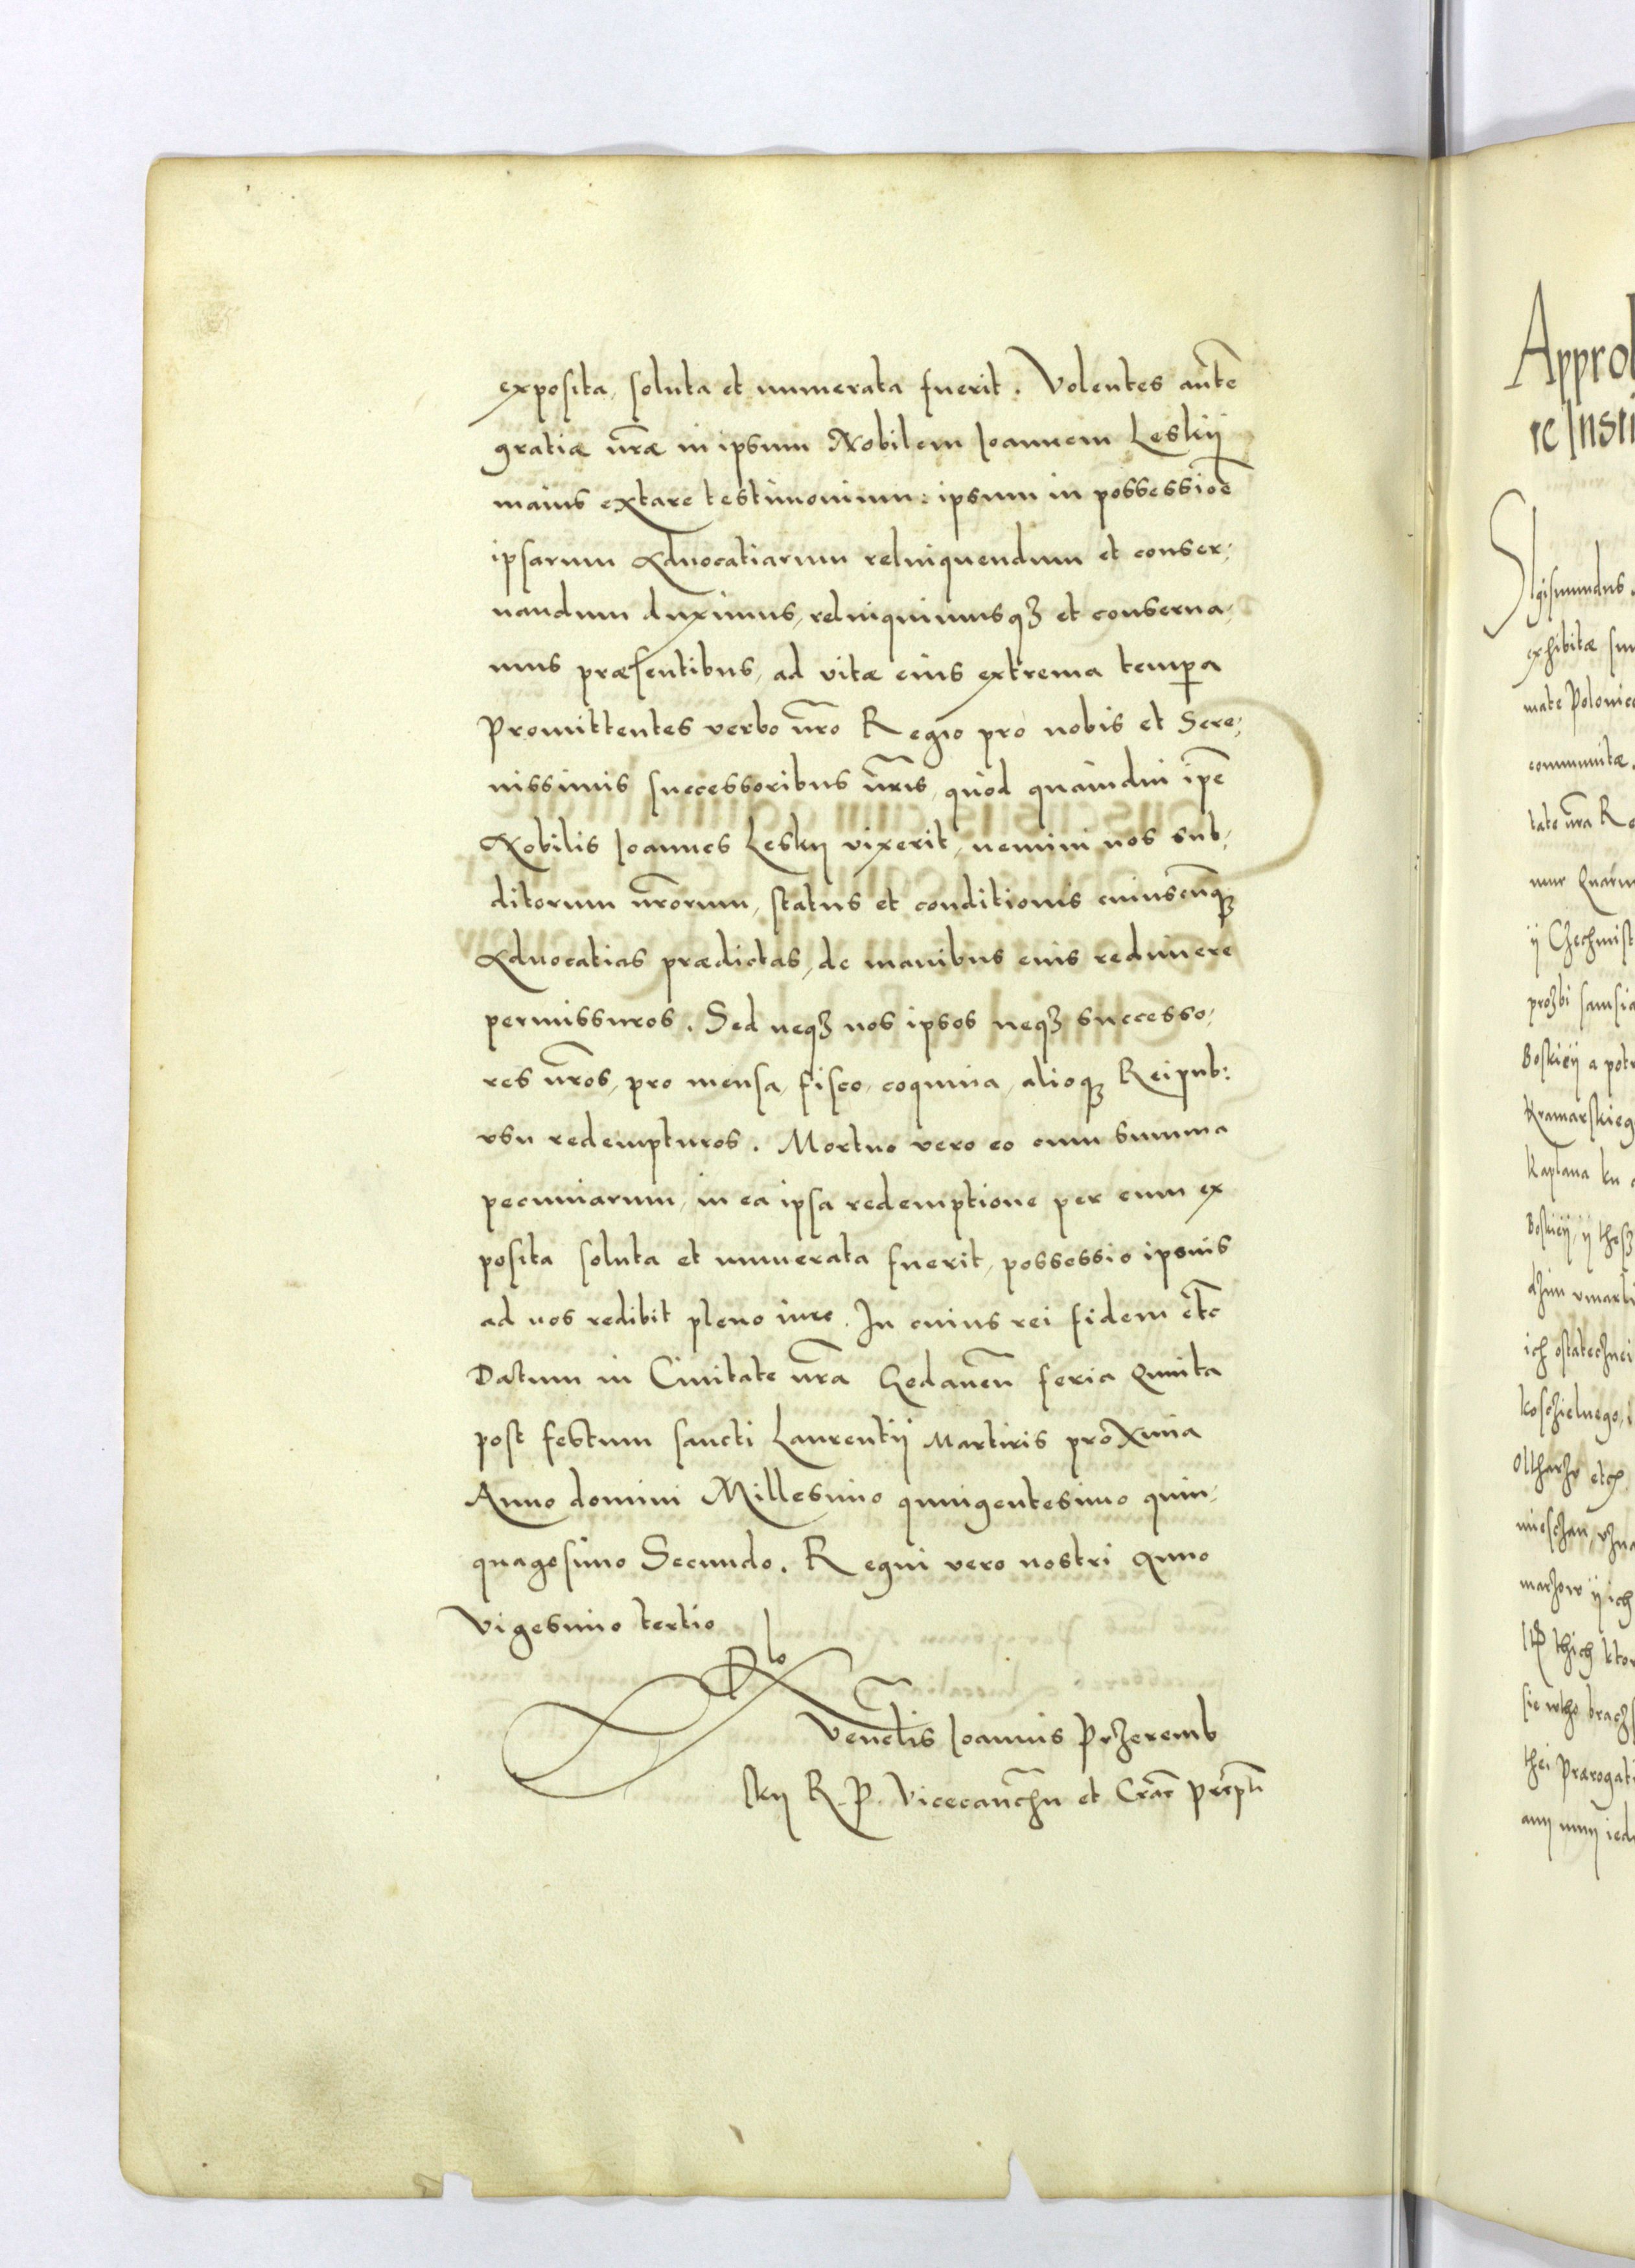 exposita, soluta et numerata fuerit. Volentes aũte
gratiæ ñræ in ipsum Nobilem Ioannem Leskij
maius extare testimonium: ipsum in possessioẽ
ipsarum Advocatiarum relinquendum et conser,
uandum duximus, relinquimusqꝫ et conserua,
mus præsentibus, ad vitæ eius extrema tempa
Promittentes verbo ñro Regio pro nobis et Sere,
nissimis successoribus ñris, quod quamdiu ipẽ
Nobilis Ioannes Leskij vixerit, nemini nos sub,
ditorum ñrorum, status et conditionis cuiuscũqꝫ
Aduocatias prædictas, de manibus eius redimere
permissuros. Sed neqꝫ nos ipsos neqꝫ successo,
res ñros, pro mensa, fisco, coquina, alioqꝫ Reipub:
vsu redempturos. Mortuo vero eo cum summa
pecuniarum, in ea ipsa redemptione per eum ex
posita soluta et numerata fuerit, possessio ipsius
ad nos redibit pleno iure. In cuius rei fidem etc̃
Datum in Ciuitate ñra Gedaneñ feria Quinta
post festum sancti Laurentij Martiris proxima
Anno domini Millesimo quingentesimo quin,
quagesimo Secundo. Regni vero nostri Anno
Vigesimo tertio
Ven̄dis Ioannis Przeremb
skij R. P. Vicecancñ et Crac̃ p̃rpti
Approb
re Insti
Sigismundus
exhibitæ sun
mate Polonico
communitæ.
tate ñra Re
mur Quarum
ij Chechmist
prozbi samsia
Boskieij a potr
Kramarskieg
Kaplana ku
Boskieij, ij thesz
ich ostatecznei
koscielnego,
Oltharzv etc